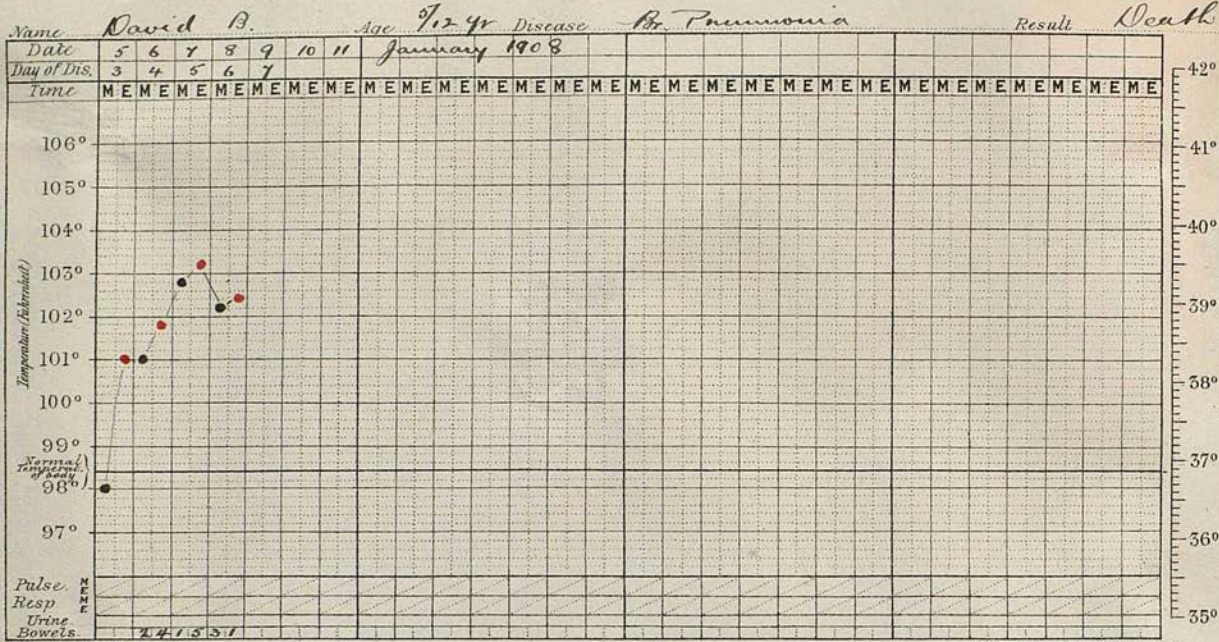 Name David B. Age 5/12 yr Disease Br. Pneumonia Result Death
Date 5 6 7 8 9 10 11 January 1908
Day of Dis. 3 4 5 6 7
Time M E M E M E M E M E M E M E M E M E M E M E M E M E M E M E M E M E M E M E M E M E M E M E M E M E M E M E M E
42°
106°
41°
105°
104°
40°
103°
Temperature (Fahrenheit)
39°
102°
101°
38°
100°
99°
Normal
Temperat.
of body
37°
98°
97°
36°
Pulse. M E
Resp M E
35°
Urine.
Bowels. 2 4 1 5 3 1